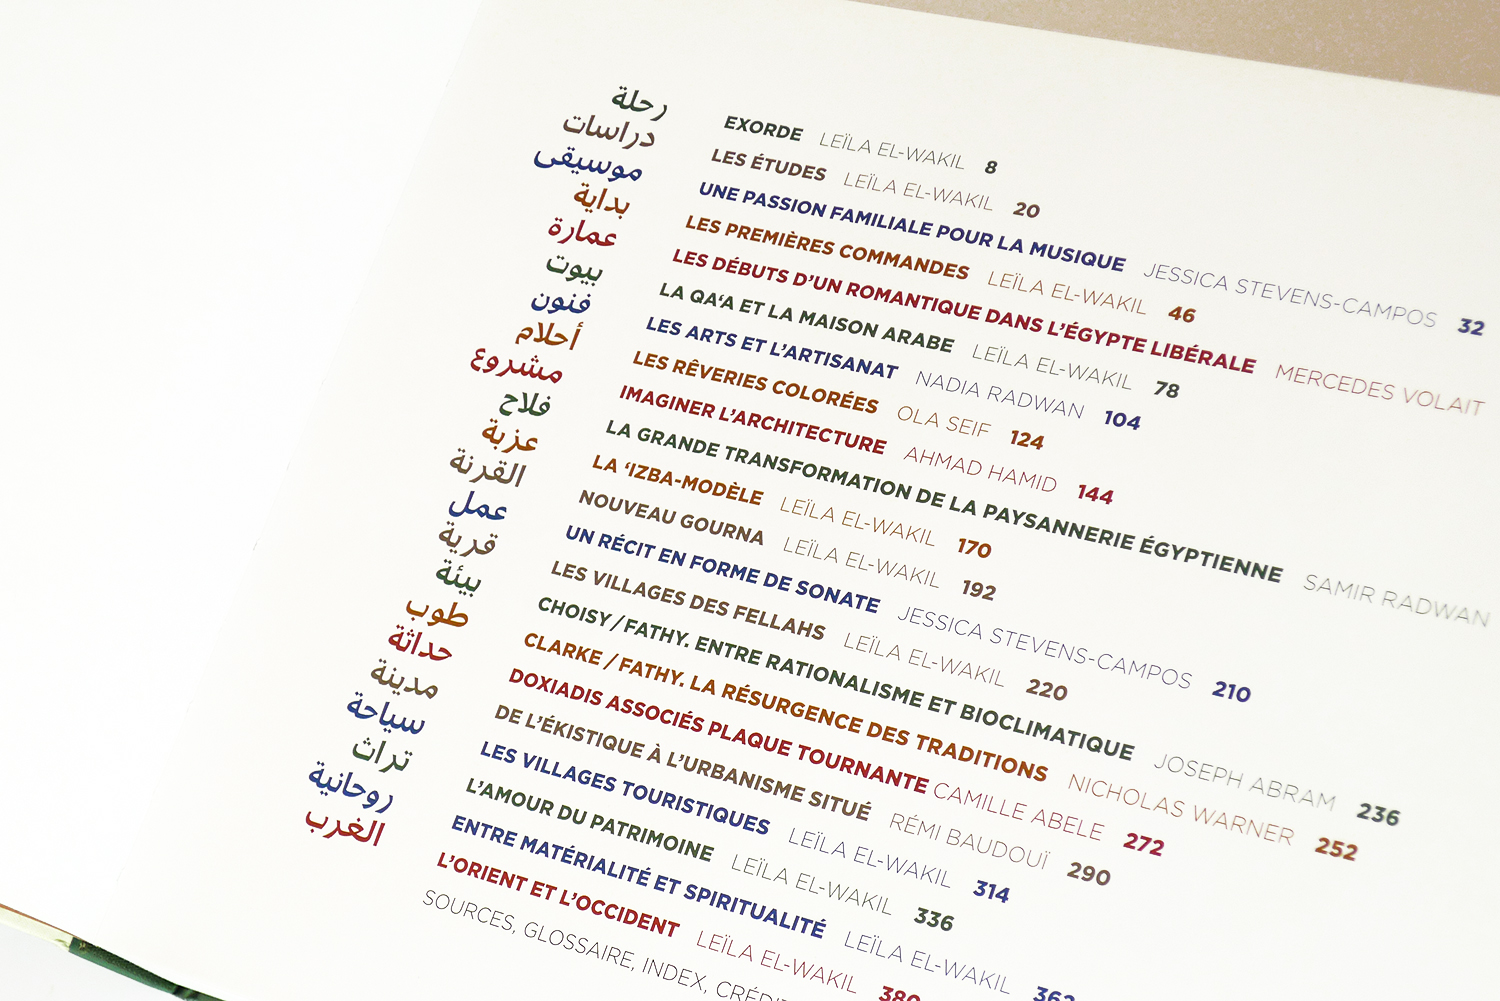 رحلة
دراسات
موسيقى
بداية
عمارة
بيوت
فنون
أحلام
مشروع
فلاح
عزبة
القرنة
عمل
قرية
بيئة
طوب
حداثة
مدينة
سياحة
تراث
روحانية
الغرب
EXORDE LEÏLA EL-WAKIL 8
LES ÉTUDES LEÏLA EL-WAKIL 20
UNE PASSION FAMILIALE POUR LA MUSIQUE JESSICA STEVENS-CAMPOS 32
LES PREMIÈRES COMMANDES LEÏLA EL-WAKIL 46
LES DÉBUTS D'UN ROMANTIQUE DANS L'ÉGYPTE LIBÉRALE MERCEDES VOLAIT
LA QA‘A ET LA MAISON ARABE LEÏLA EL-WAKIL 78
LES ARTS ET L'ARTISANAT NADIA RADWAN 104
LES RÊVERIES COLORÉES OLA SEIF 124
IMAGINER L'ARCHITECTURE AHMAD HAMID 144
LA GRANDE TRANSFORMATION DE LA PAYSANNERIE ÉGYPTIENNE SAMIR RADWAN
LA ‘IZBA-MODÈLE LEÏLA EL-WAKIL 170
NOUVEAU GOURNA LEÏLA EL-WAKIL 192
UN RÉCIT EN FORME DE SONATE JESSICA STEVENS-CAMPOS 210
LES VILLAGES DES FELLAHS LEÏLA EL-WAKIL 220
CHOISY / FATHY. ENTRE RATIONALISME ET BIOCLIMATIQUE JOSEPH ABRAM 236
CLARKE / FATHY. LA RÉSURGENCE DES TRADITIONS NICHOLAS WARNER 252
DOXIADIS ASSOCIÉS PLAQUE TOURNANTE CAMILLE ABELE 272
DE L'ÉKISTIQUE À L'URBANISME SITUÉ RÉMI BAUDOUÏ 290
LES VILLAGES TOURISTIQUES LEÏLA EL-WAKIL 314
L'AMOUR DU PATRIMOINE LEÏLA EL-WAKIL 336
ENTRE MATÉRIALITÉ ET SPIRITUALITÉ LEÏLA EL-WAKIL 362
L'ORIENT ET L'OCCIDENT LEÏLA EL-WAKIL 380
SOURCES, GLOSSAIRE, INDEX,